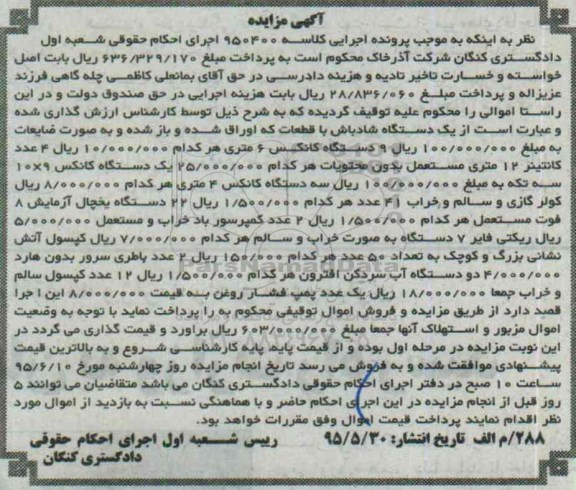 آگهی مزایده
نظر به اینکه به موجب پرونده اجرایی کلاسه ۹۵۰۴۰۰ اجرای احکام حقوقی شعبه اول
دادگستری کنگان شرکت آذرخاک محکوم است به پرداخت مبلغ ۶۳۶/۳۲۹/۱۷۰ ریال بابت اصل
خواسته و خسارت تاخیر تادیه و هزینه دادرسی در حق آقای بمانعلی کاظمی چله گاهی فرزند
عزیزاله و پرداخت مبلغ ۲۸/۸۳۶/۰۶۰ ریال بابت هزینه اجرایی در حق صندوق دولت و در این
راستا اموالی را محکوم علیه توقیف گردیده که به شرح ذیل توسط کارشناس ارزش گذاری شده
و عبارت است از یک دستگاه شادباش با قطعات که اوراق شده و باز شده و به صورت ضایعات
به مبلغ ۱۰۰/۰۰۰/۰۰۰ ریال ۹ دستگاه کانکس ۶ متری هر کدام ۱۰/۰۰۰/۰۰۰ ریال ۴ عدد
کانتینر ۱۲ متری مستعمل بدون محتویات هر کدام ۲۵/۰۰۰/۰۰۰ یک دستگاه کانکس ۹×۱۰
سه تکه به مبلغ ۱۰۰/۰۰۰/۰۰۰ ریال سه دستگاه کانکس ۴ متری هر کدام ۸/۰۰۰/۰۰۰ ریال
کولر گازی و سالم و خراب ۴۱ عدد هر کدام ۱/۵۰۰/۰۰۰ ریال ۲۲ دستگاه یخچال آزمایش ۸
فوت مستعمل هر کدام ۱/۵۰۰/۰۰۰ ریال ۲ عدد کمپرسور باد خراب و مستعمل ۵/۰۰۰/۰۰۰
ریال ریکتی فایر ۷ دستگاه به صورت خراب و سالم هر کدام ۷/۰۰۰/۰۰۰ ریال کپسول آتش
نشانی بزرگ و کوچک به تعداد ۵۰ عدد هر کدام ۱۵۰/۰۰۰ ریال ۲ عدد باطری سرور بدون هارد
۴/۰۰۰/۰۰۰ دو دستگاه آب سردکن افترون هر کدام ۱/۵۰۰/۰۰۰ ریال ۱۲ عدد کپسول سالم
و خراب جمعا ۱۸/۰۰۰/۰۰۰ ریال یک عدد پمپ فشار روغن به قیمت ۸/۰۰۰/۰۰۰ این اجرا
قصد دارد از طریق مزایده و فروش اموال توقیفی محکوم به را پرداخت نماید با توجه به وضعیت
اموال مزبور و استهلاک آنها جمعا مبلغ ۶۰۳/۰۰۰/۰۰۰ ریال براورد و قیمت گذاری می گردد در
این نوبت مزایده در مرحله اول بوده و از قیمت پایه کارشناسی شروع و به بالاترین قیمت
پیشنهادی موافقت شده و به فروش می رسد تاریخ انجام مزایده روز چهارشنبه مورخ ۹۵/۶/۱۰
ساعت ۱۰ صبح در دفتر اجرای احکام حقوقی دادگستری کنگان می باشد متقاضیان می توانند ۵
روز قبل از انجام مزایده در این اجرای احکام حاضر و با هماهنگی نسبت به بازدید از اموال مورد
نظر اقدام نمایند پرداخت قیمت اموال وفق مقررات خواهد بود.
۲۸۸/م الف تاریخ انتشار: ۹۵/۵/۳۰ رییس شعبه اول اجرای احکام حقوقی
دادگستری کنگان